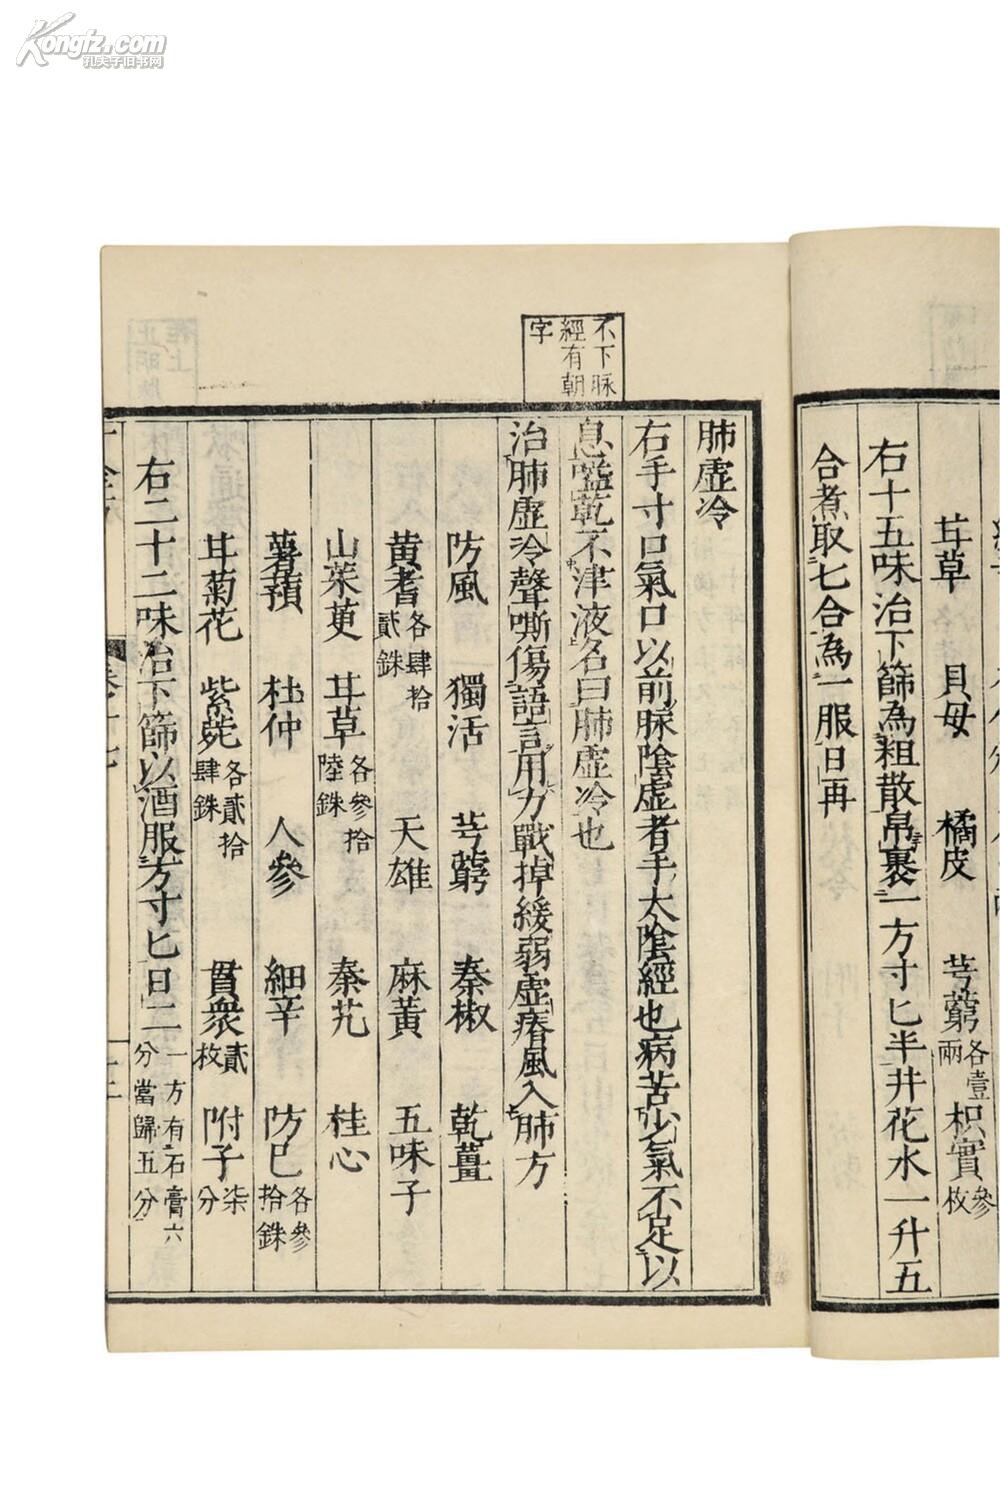 Kongfz.com
孔夫子旧书网
甘草 貝母 橘皮 芎藭各壹兩 枳實參枚
右十五味治下篩為粗散帛裹一方寸匕半井花水一升五
合煮取七合為一服日再
不下脉
經有朝
字
肺虛冷
右手寸口氣口以前脉陰虛者手太陰經也病苦少氣不足以
息嗌乾不津液名曰肺虛冷也
治肺虛冷聲嘶傷語言用力戰掉緩弱虛瘠風入肺方
防風 獨活 芎藭 秦椒 乾薑
黃耆各肆拾貳銖 天雄 麻黃 五味子
山茱萸 甘草各參拾陸銖 秦艽 桂心
薯蕷 杜仲 人參 細辛 防己各參拾銖
甘菊花 紫菀各貳拾肆銖 貫衆貳枚 附子柒分
右二十二味治下篩以酒服方寸匕日二一方有石膏六分當歸五分